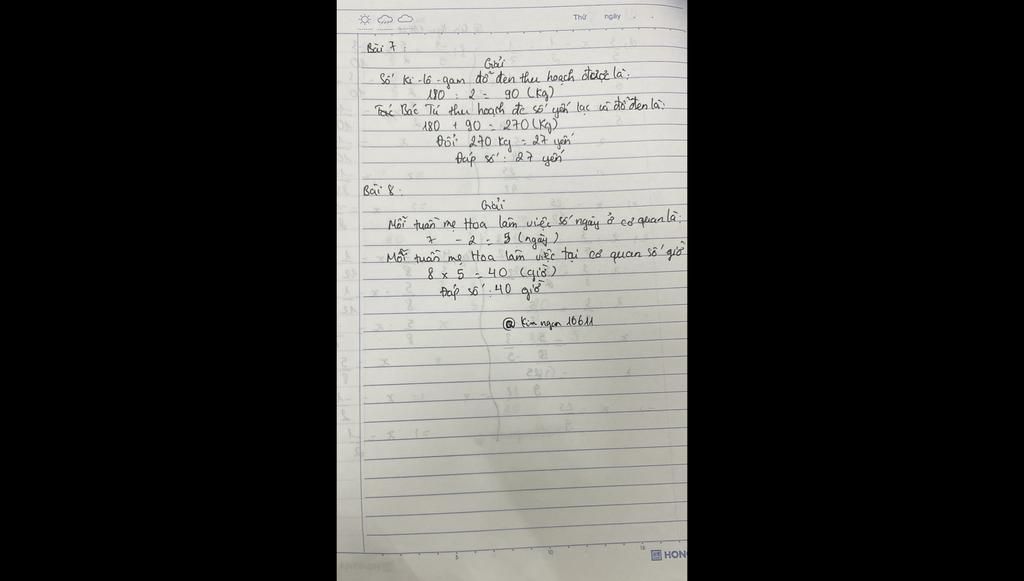 Thứ ngày . .
Bài 7 :
Giải
Số ki-lô-gam đỗ đen thu hoạch được là:
180 : 2 = 90 (kg)
Bác Tú thu hoạch đc số yến lạc và đỗ đen là:
180 + 90 = 270 (kg)
Đổi 270 kg = 27 yến
Đáp số : 27 yến
Bài 8 :
Giải
Mỗi tuần mẹ Hoa làm việc số ngày ở cơ quan là:
7 - 2 = 5 (ngày)
Mỗi tuần mẹ Hoa làm việc tại cơ quan số giờ
8 x 5 = 40 (giờ)
Đáp số : 40 giờ
@ Kim ngan 10611
5 10 15
HON